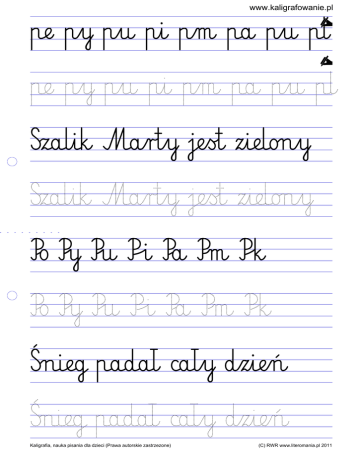 www.kaligrafowanie.pl
pe py pu pi pm pa pu pł
pe py pu pi pm pa pu pł
Szalik Marty jest zielony
Szalik Marty jest zielony
Po Py Pu Pi Pa Pm Pk
Po Py Pu Pi Pa Pm Pk
Śnieg padał cały dzień
Śnieg padał cały dzień
Kaligrafia, nauka pisania dla dzieci (Prawa autorskie zastrzeżone) (C) RWR www.literomania.pl 2011